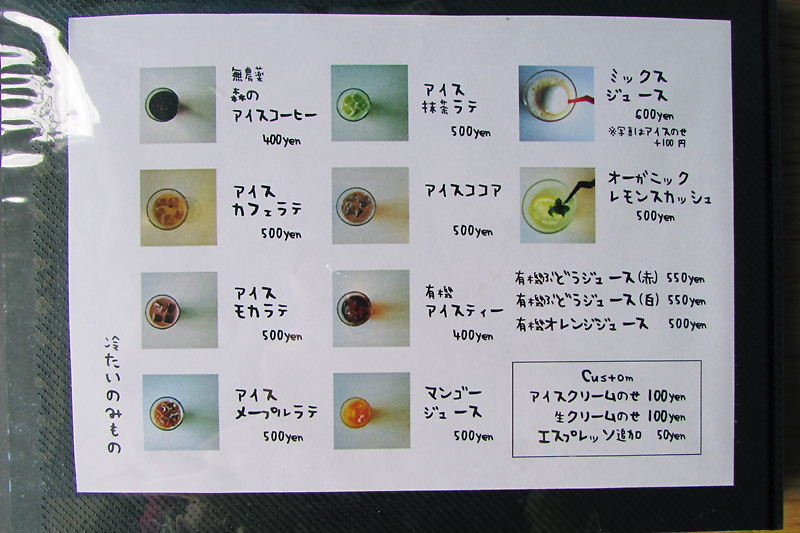 冷たいのみもの
無農薬
森の
アイスコーヒー
400yen
アイス
カフェラテ
500yen
アイス
モカラテ
500yen
アイス
メープルラテ
500yen
アイス
抹茶ラテ
500yen
アイスココア
500yen
有機
アイスティー
400yen
マンゴー
ジュース
500yen
ミックス
ジュース
600yen
※写真はアイスのせ
+100円
オーガニック
レモンスカッシュ
500yen
有機ぶどうジュース(赤) 550yen
有機ぶどうジュース(白) 550yen
有機オレンジジュース 500yen
Custom
アイスクリームのせ 100yen
生クリームのせ 100yen
エスプレッソ追加 50yen